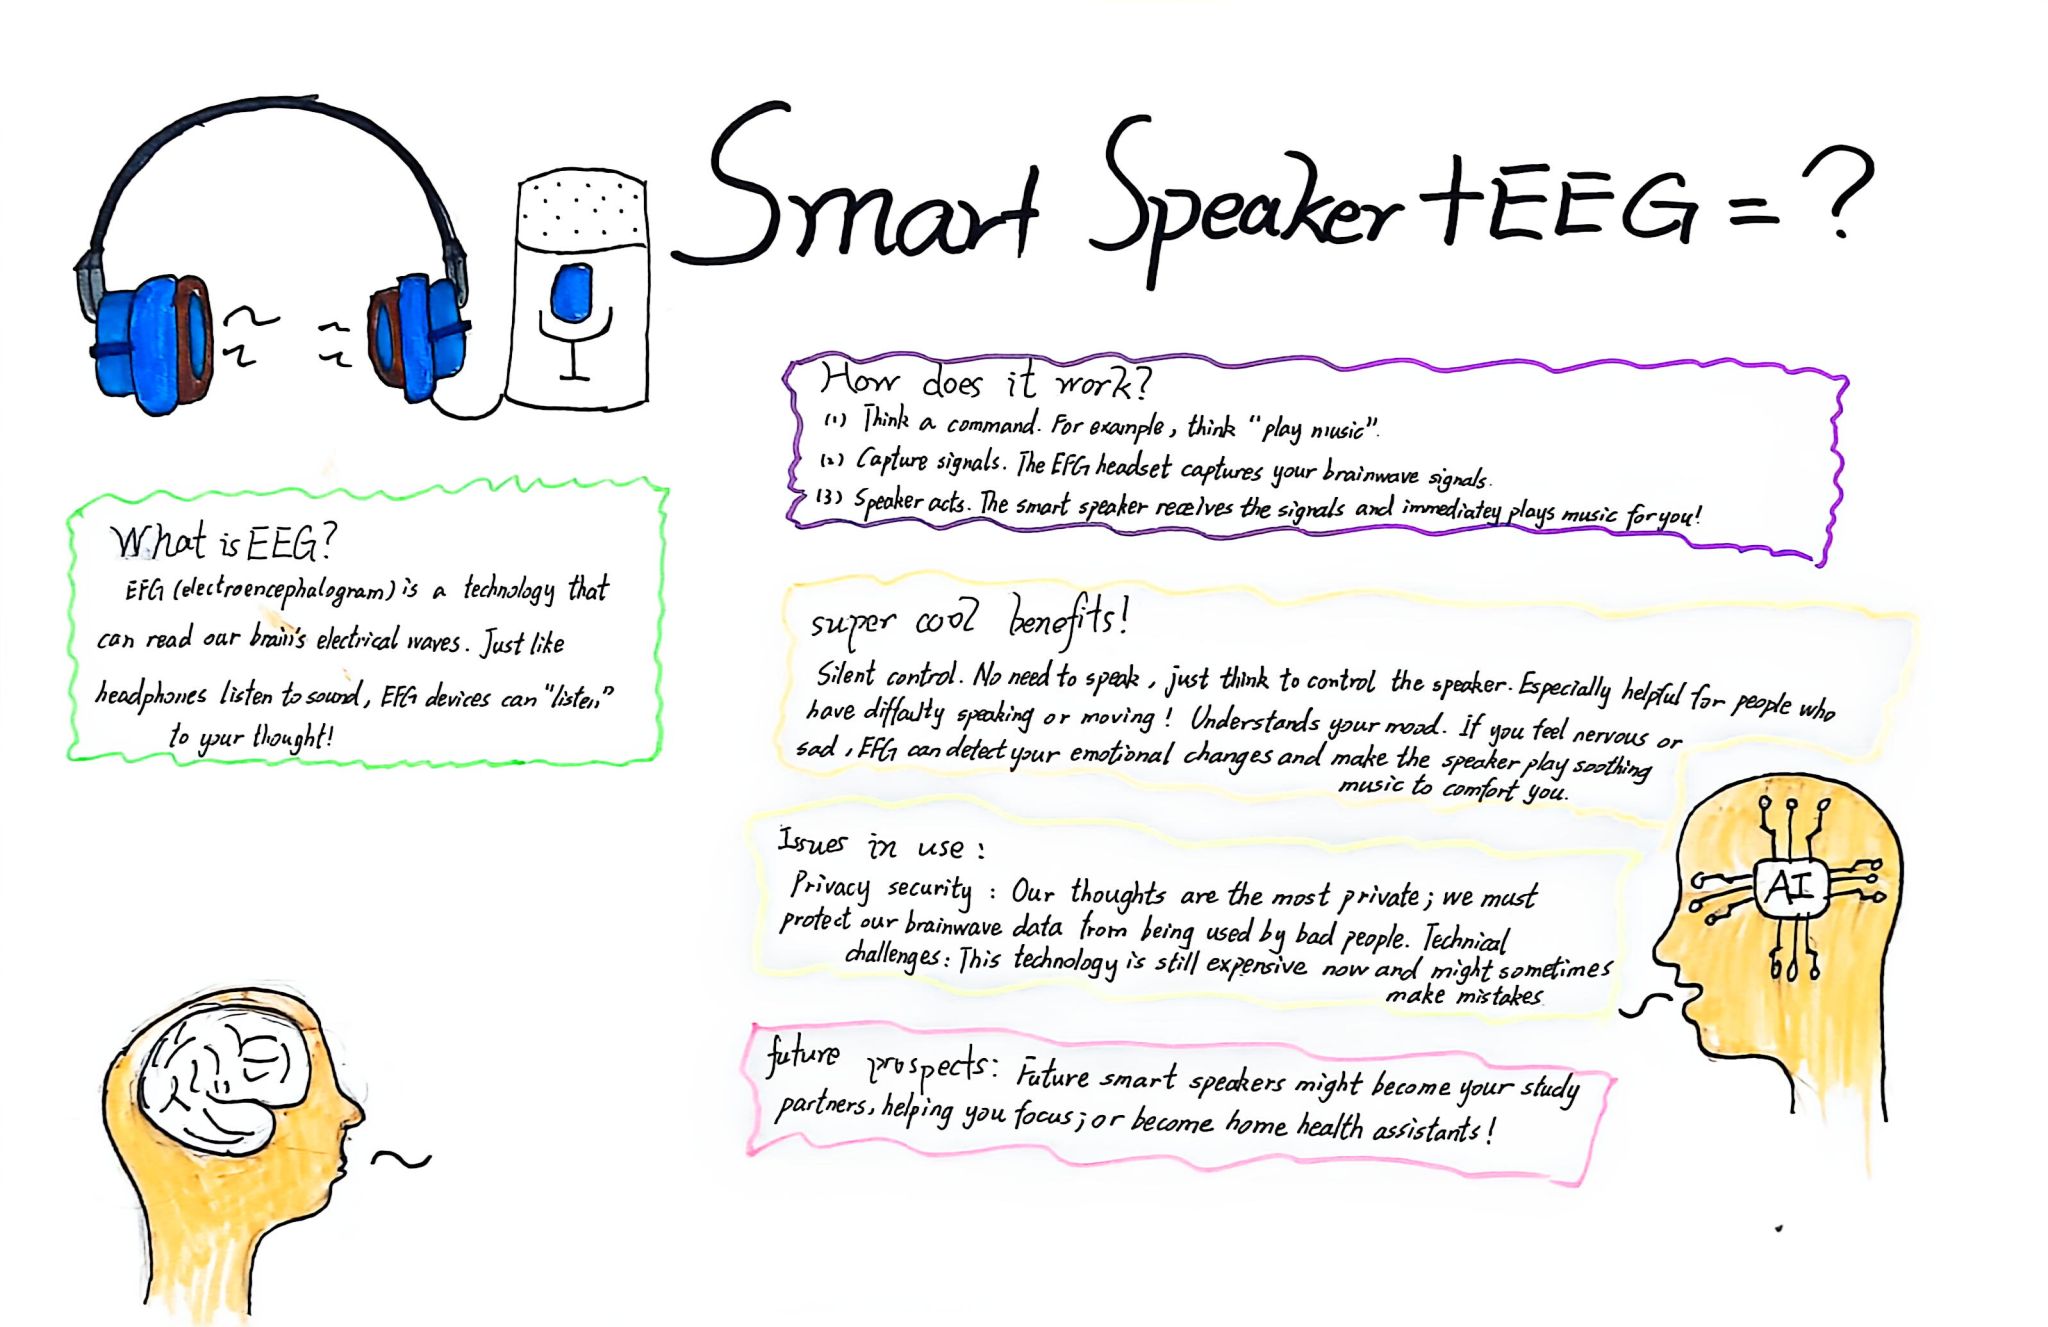 Smart Speaker + EEG = ?
What is EEG?
EFG (electroencephalogram) is a technology that
can read our brain's electrical waves. Just like
headphones listen to sound, EFG devices can "listen"
to your thought!
How does it work?
(1) Think a command. For example, think "play music".
(2) Capture signals. The EFG headset captures your brainwave signals.
(3) Speaker acts. The smart speaker receives the signals and immediatey plays music for you!
super cool benefits!
Silent control. No need to speak, just think to control the speaker. Especially helpful for people who
have diffaulty speaking or moving! Understands your mood. if you feel nervous or
sad, EFG can detect your emotional changes and make the speaker play soothing
music to comfort you.
Issues in use:
Privacy security: Our thoughts are the most private; we must
protect our brainwave data from being used by bad people. Technical
challenges: This technology is still expensive now and might sometimes
make mistakes
AI
future prospects: Future smart speakers might become your study
partners, helping you focus; or become home health assistants!